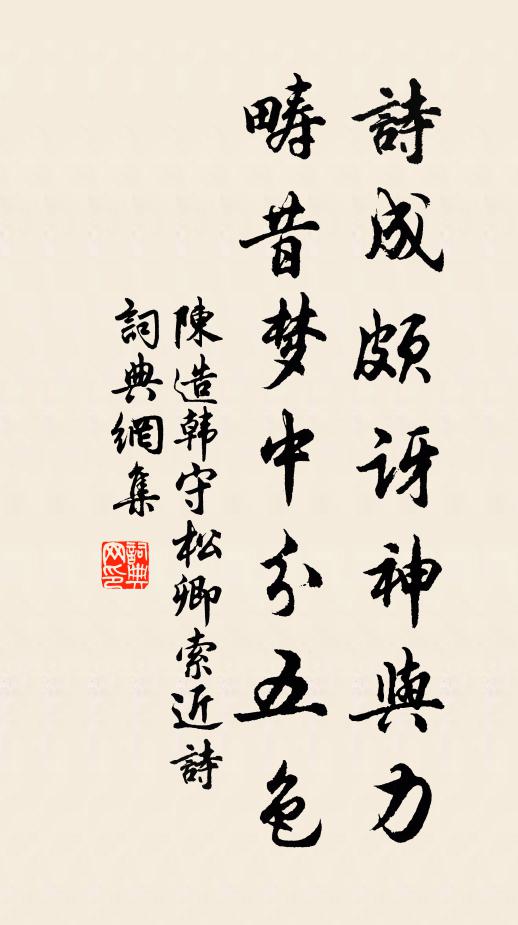 詩成頗訝神與力
疇昔梦中分五色
陳造韩守松卿索近詩
詞典網集
詞典网印